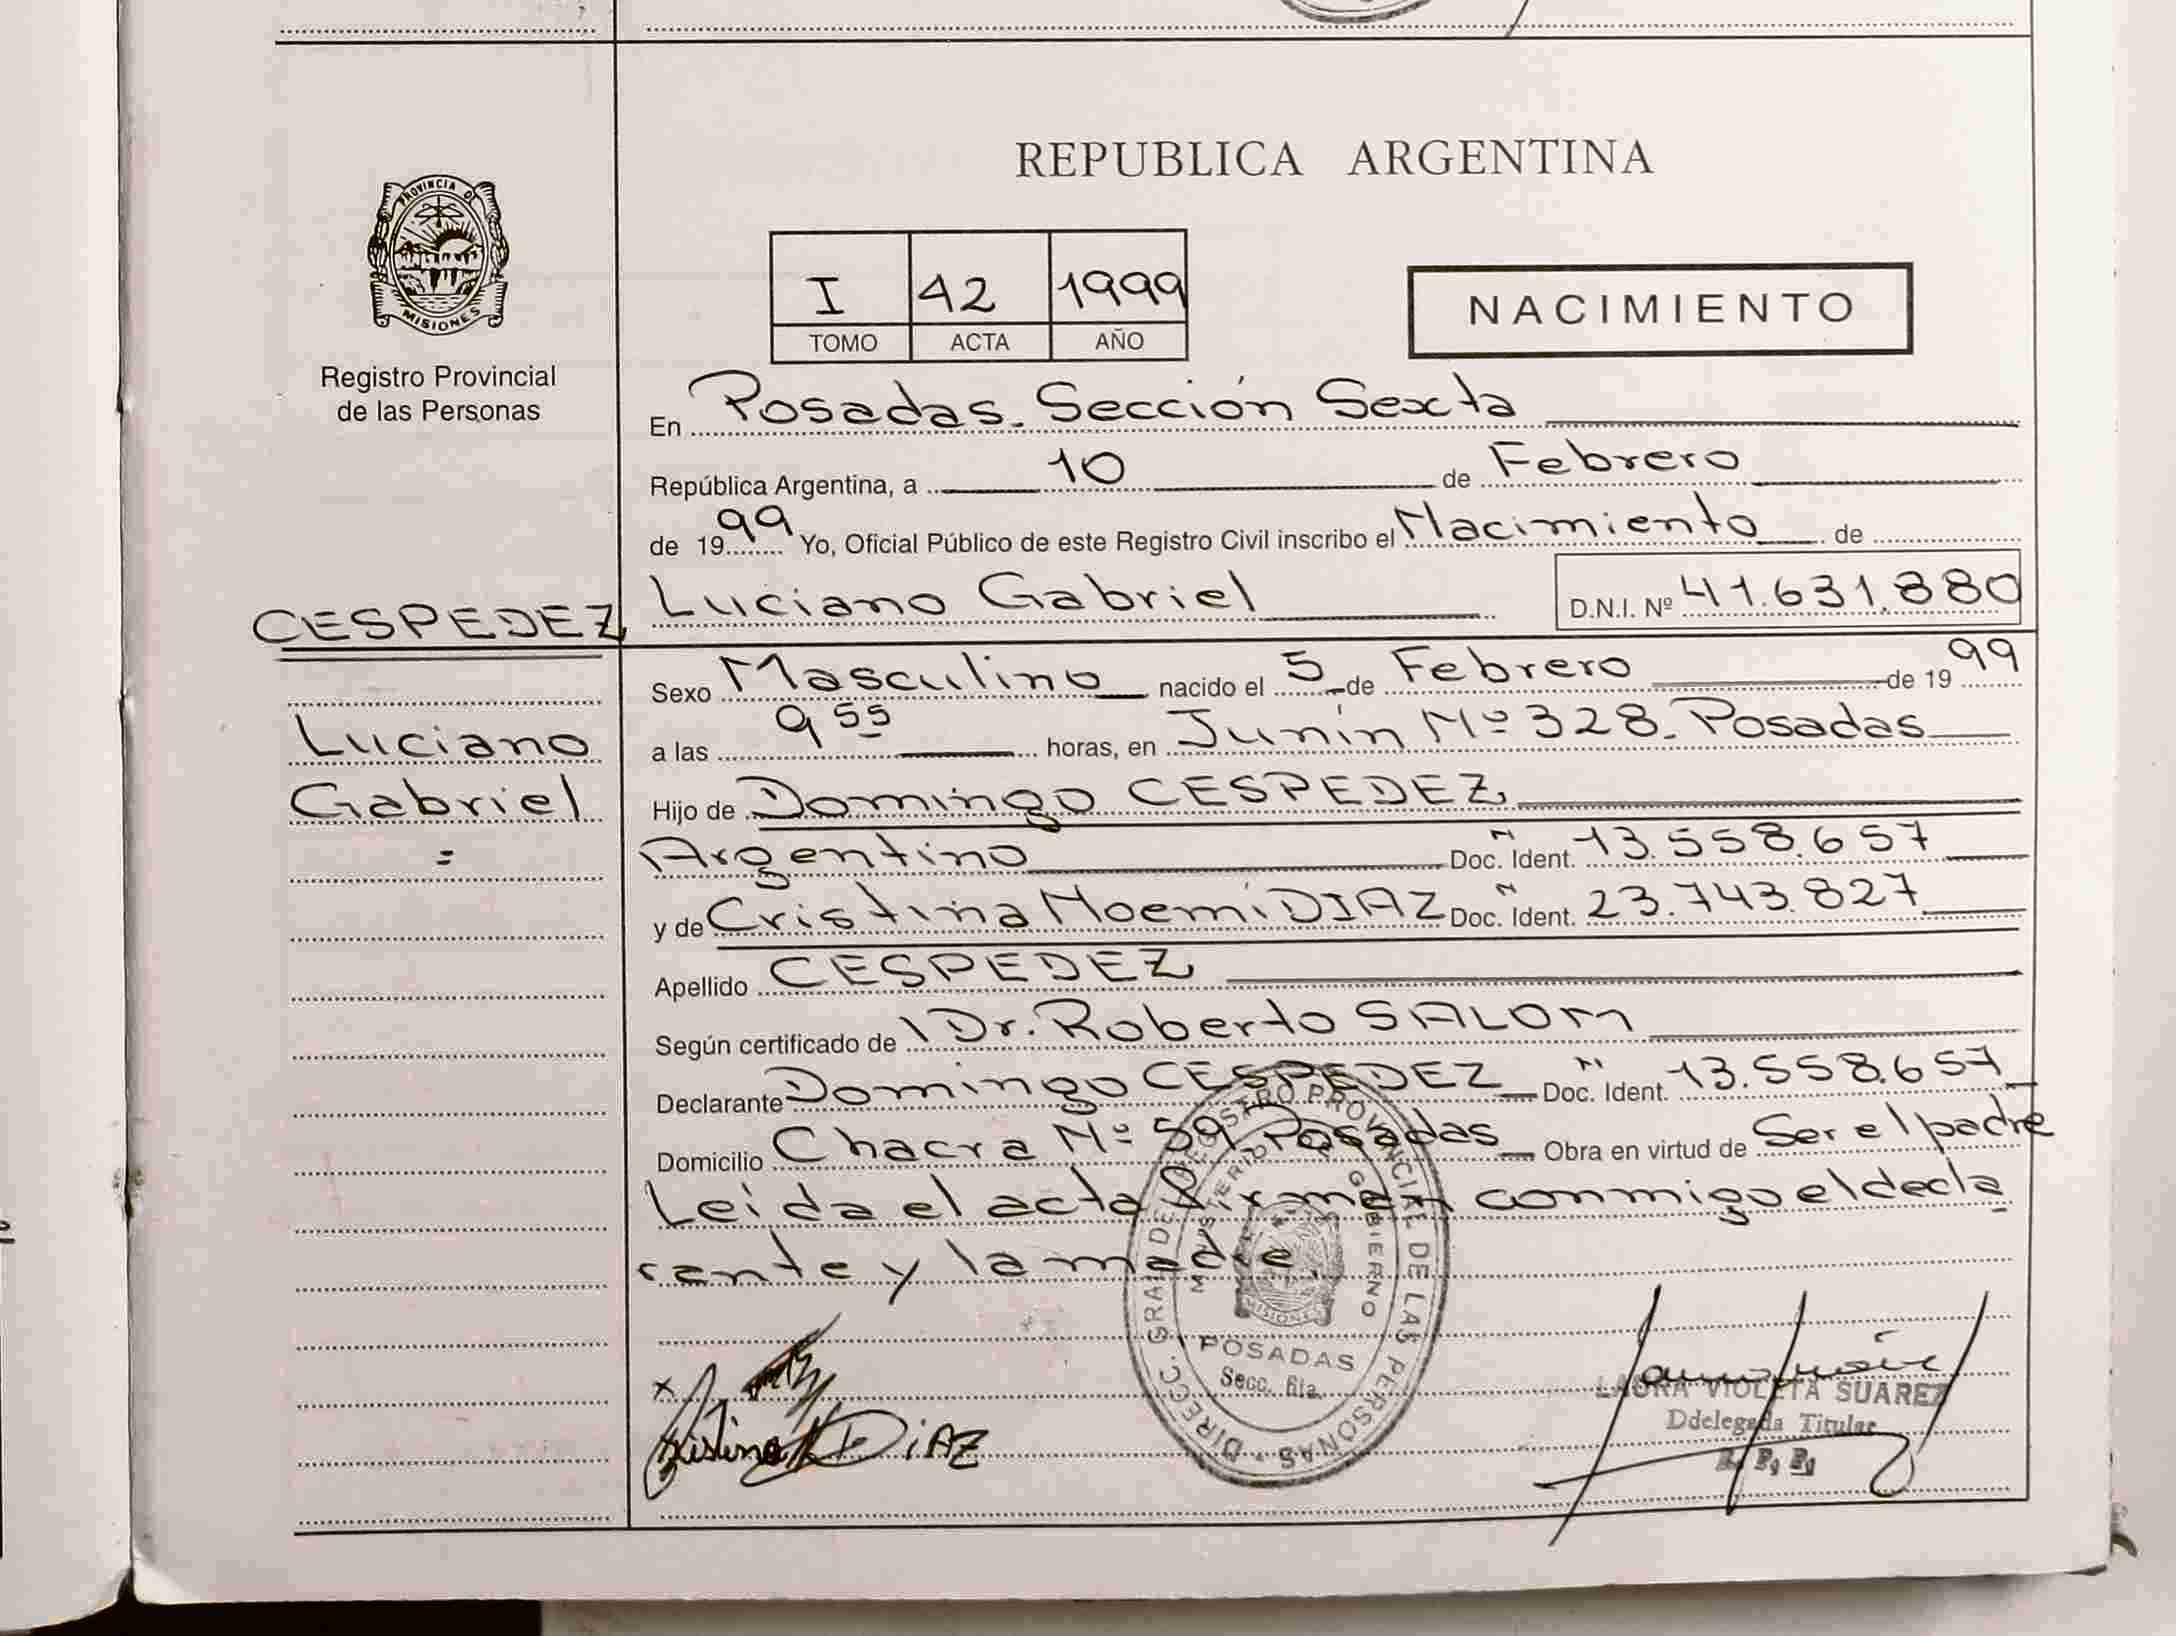 REPUBLICA ARGENTINA
PROVINCIA DE
MISIONES
Registro Provincial
de las Personas
I 42 1999
TOMO ACTA AÑO
NACIMIENTO
En Posadas. Sección Sexta
República Argentina, a 10 de Febrero
de 1999 Yo, Oficial Público de este Registro Civil inscribo el Nacimiento de
Luciano Gabriel D.N.I. Nº 41.631.880
CESPEDEZ
Luciano
Gabriel
Sexo Masculino nacido el 5 de Febrero de 1999
a las 9 55 horas, en Junín Nº 328. Posadas
Hijo de Domingo CESPEDEZ
Argentino Doc. Ident. N 13.558.657
y de Cristina Noemí DIAZ Doc. Ident. N 23.743.827
Apellido CESPEDEZ
Según certificado de Dr. Roberto SALOM
Declarante Domingo CESPEDEZ Doc. Ident. N 13.558.657
Domicilio Chacra Nº 59 Posadas Obra en virtud de Ser el padre
Leída el acta firman conmigo el decla
rante y la madre.
DIRECC. GRAL. DE REGISTRO PROVINCIAL DE LAS PERSONAS
MINISTERIO GOBIERNO
MISIONES
POSADAS
Secc. 6ta.
x
Cristina DIAZ
LAURA VIOLETA SUAREZ
Ddelegada Titular
R. P. P.